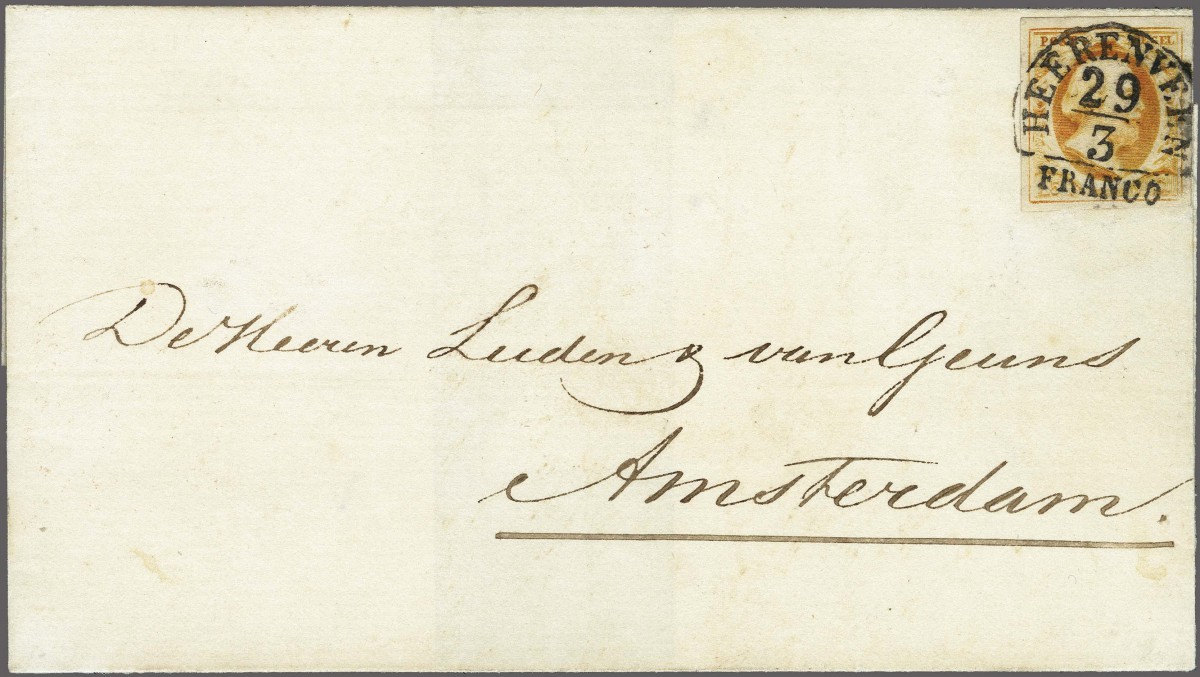 POST ZEGEL
HEERENVEEN
29
3
FRANCO
De Heeren Luden & van Geuns
Amsterdam.